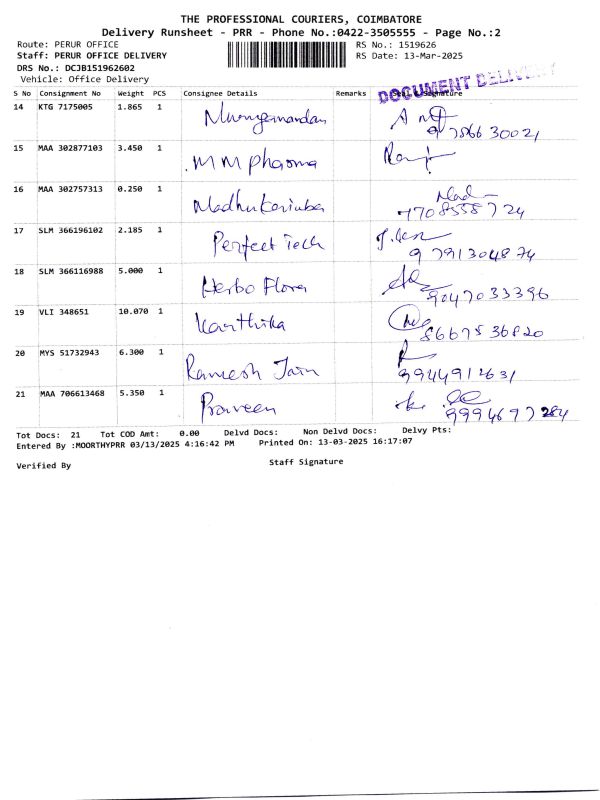 THE PROFESSIONAL COURIERS, COIMBATORE
Delivery Runsheet - PRR - Phone No.:0422-3505555 - Page No.:2
Route: PERUR OFFICE RS No.: 1519626
Staff: PERUR OFFICE DELIVERY RS Date: 13-Mar-2025
DRS No.: DCJB151962602
Vehicle: Office Delivery
DOCUMENT DELIVERY
S No Consignment No Weight PCS Consignee Details Remarks Signature
14 KTG 7175005 1.865 1 Muruganandan
9786630021
15 MAA 302877103 3.450 1 MM pharma
16 MAA 302757313 0.250 1
7708555724
17 SLM 366196102 2.185 1 Perfect Tech
9791304874
18 SLM 366116988 5.000 1 Herbo Flora
9047033396
19 VLI 348651 10.070 1 Karthika
8667536820
20 MYS 51732943 6.300 1 Ramesh Jain
9944912631
21 MAA 706613468 5.350 1 Praveen
9994697284
Tot Docs: 21 Tot COD Amt: 0.00 Delvd Docs: Non Delvd Docs: Delvy Pts:
Entered By :MOORTHYPRR 03/13/2025 4:16:42 PM Printed On: 13-03-2025 16:17:07
Verified By Staff Signature